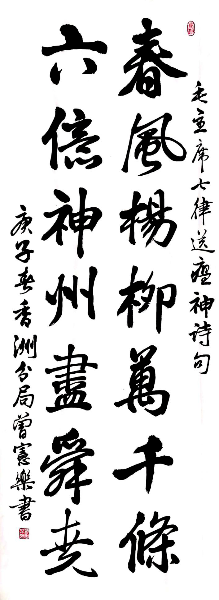 毛主席七律送瘟神詩句
春風楊柳萬千條
六億神州盡舜堯
庚子春香洲分局曾憲樂書